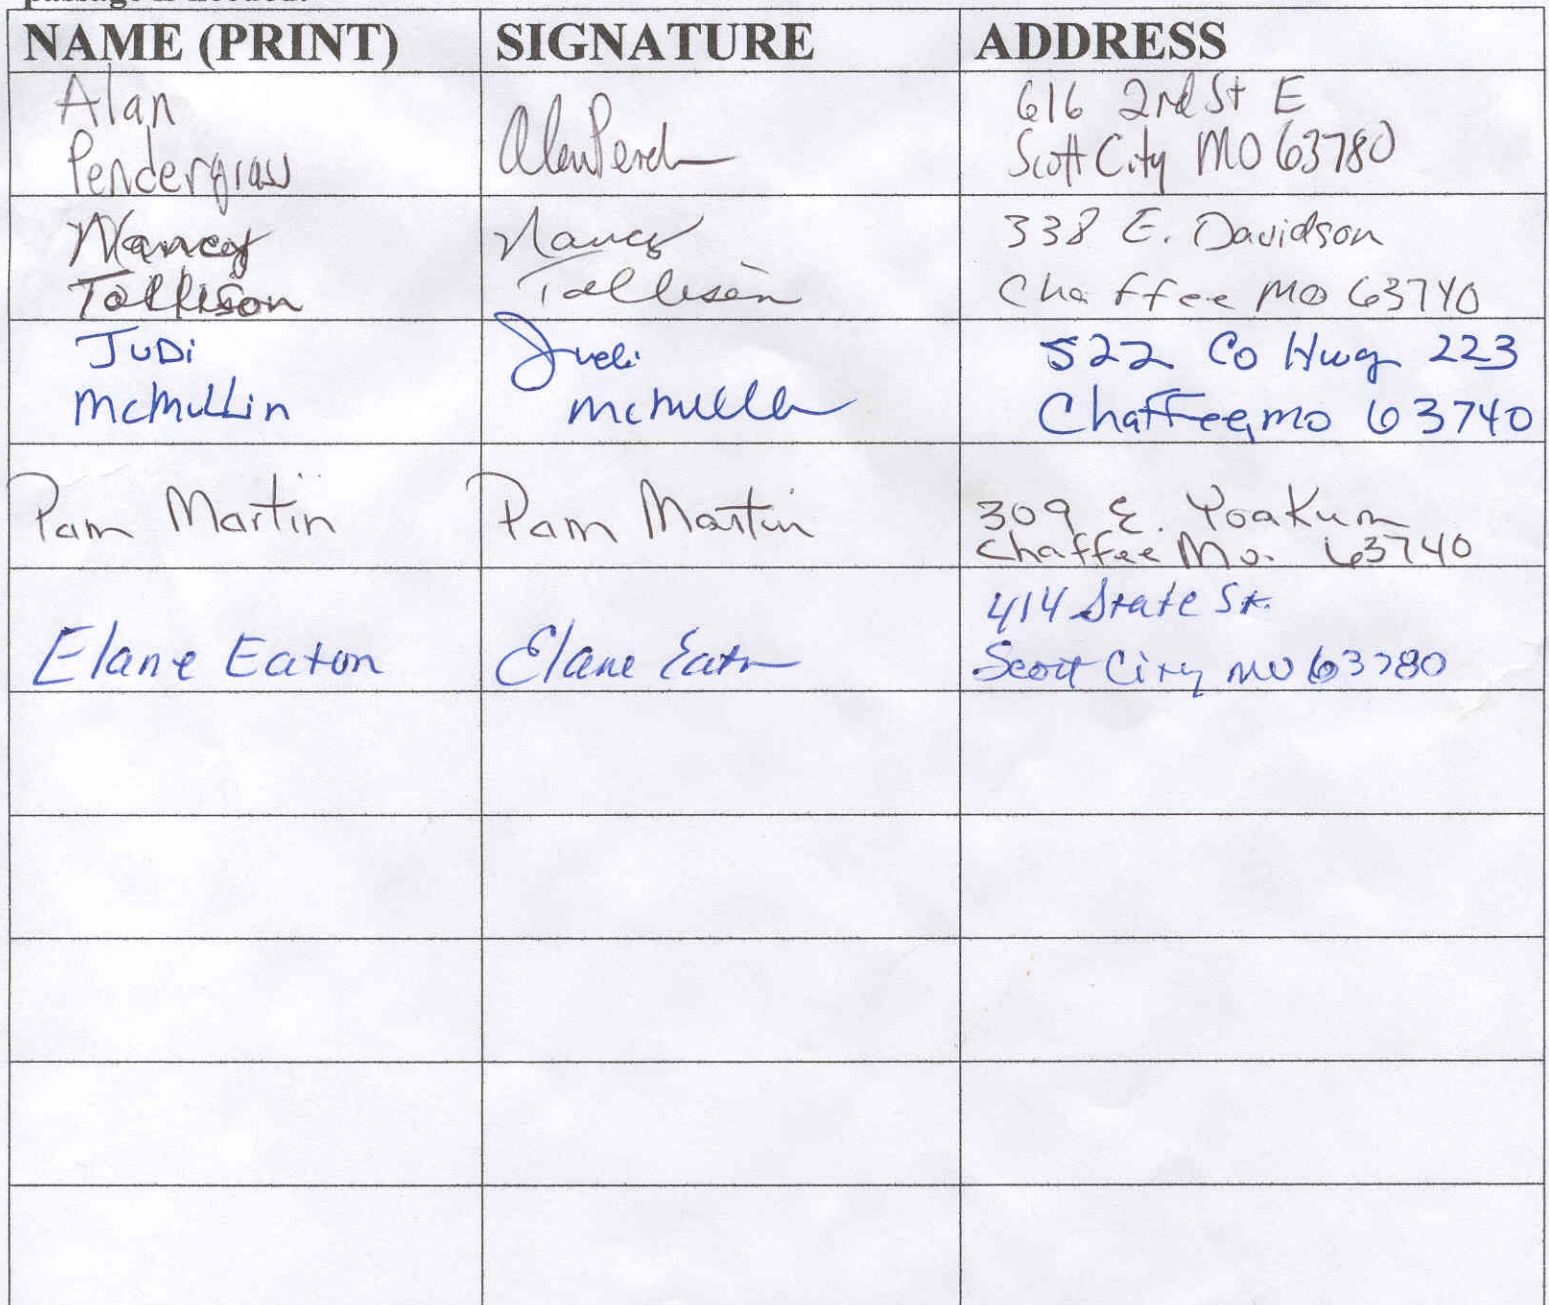 passage is needed.
NAME (PRINT) SIGNATURE ADDRESS
Alan
Pendergrass
Alan Pend
616 2nd St E
Scott City MO 63780
Nancy
Tollison
Nancy
Tollison
338 E. Davidson
Chaffee MO 63740
JuDi
McMullin
Judi
McMulli
522 Co Hwy 223
Chaffee, mo 63740
Pam Martin
Pam Martin
309 E. Yoakum
Chaffee Mo. 63740
Elane Eaton
Elane Eaton
414 State St.
Scott City MO 63780